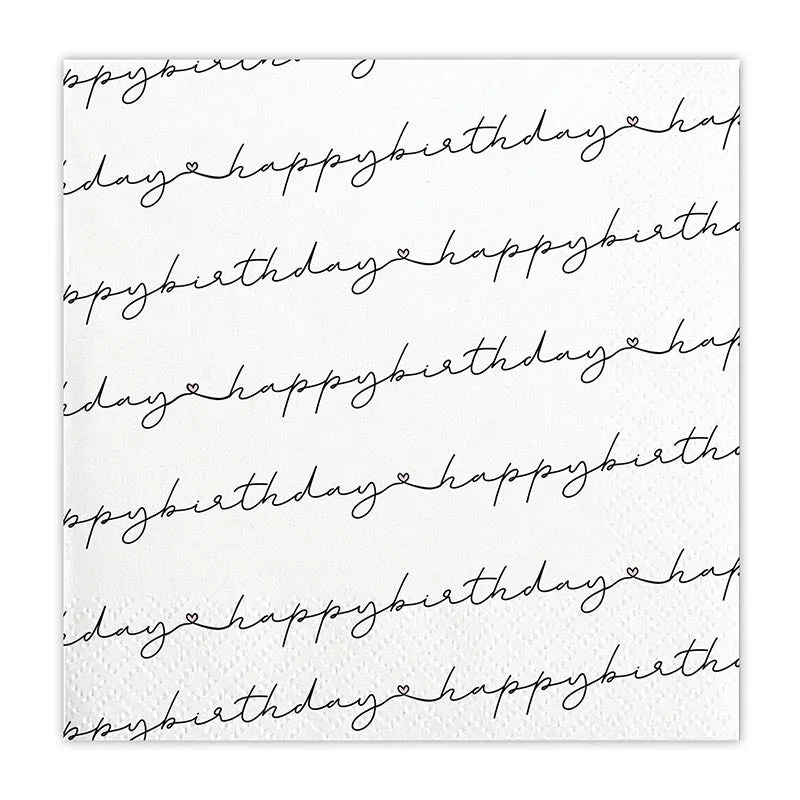 ppybirth
day♡happybirthday♡hap
ppybirthday♡happybirtha
day♡happybirthday♡hap
ppybirthday♡happybirtha
day♡happybirthday♡hap
ppybirthday♡happybirtha